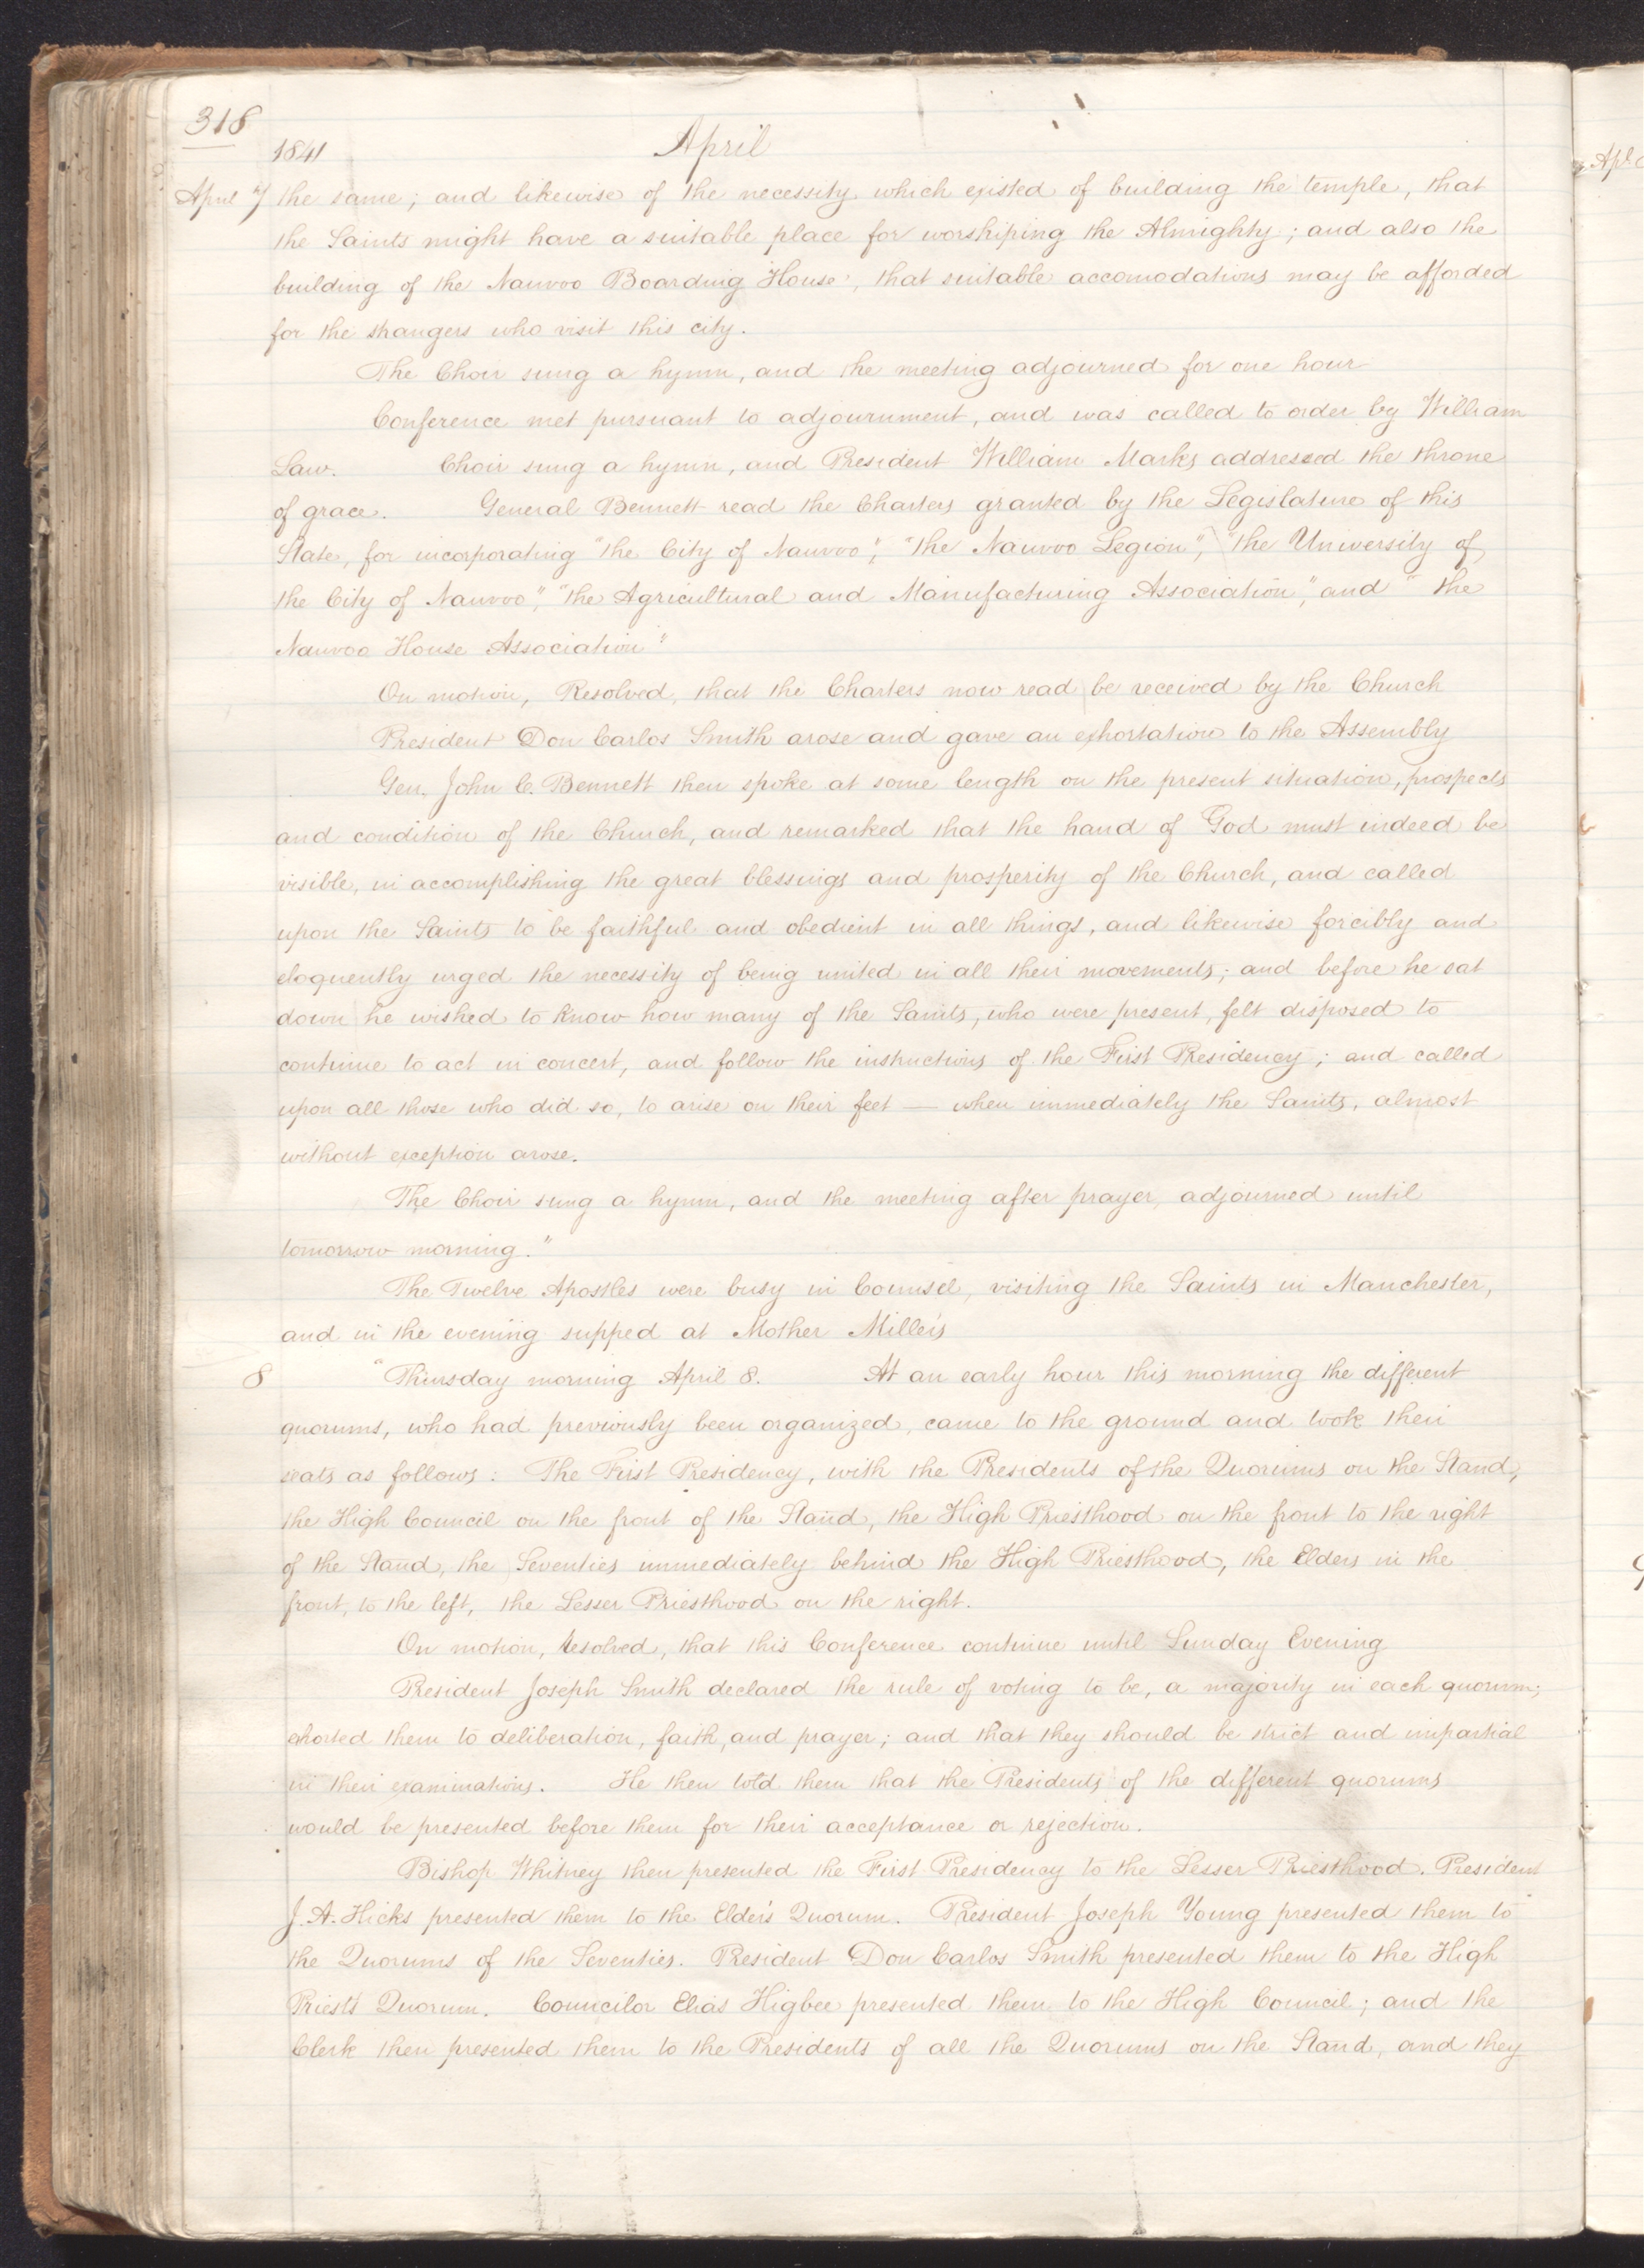 318
1841 April
April 7 the same; and likewise of the necessity which existed of building the temple, that
the Saints might have a suitable place for worshiping the Almighty; and also the
building of the Nauvoo Boarding House, that suitable accomodations may be afforded
for the strangers who visit this city.
The Choir sung a hymn, and the meeting adjourned for one hour
Conference met pursuant to adjournment, and was called to order by William
Law. Choir sung a hymn, and President William Marks addressed the throne
of grace. General Bennett read the Charters granted by the Legislature of this
State, for incorporating "the City of Nauvoo", "the Nauvoo Legion", "the University of
the City of Nauvoo", "the Agricultural and Manufacturing Association", and "the
Nauvoo House Association"
On motion, Resolved, that the Charters now read be received by the Church
President Don Carlos Smith arose and gave an exhortation to the Assembly
Gen. John C. Bennett then spoke at some length on the present situation, prospects
and condition of the Church, and remarked that the hand of God must indeed be
visible, in accomplishing the great blessings and prosperity of the Church, and called
upon the Saints to be faithful and obedient in all things, and likewise forcibly and
eloquently urged the necessity of being united in all their movements; and before he sat
down he wished to know how many of the Saints, who were present, felt disposed to
continue to act in concert, and follow the instructions of the First Presidency; and called
upon all those who did so, to arise on their feet — when immediately the Saints, almost
without exception arose.
The Choir sung a hymn, and the meeting after prayer, adjourned until
tomorrow morning."
The Twelve Apostles were busy in Counsel, visiting the Saints in Manchester,
and in the evening supped at Mother Miller's
8 "Thursday morning April 8. At an early hour this morning the different
quorums, who had previously been organized, came to the ground and took their
seats as follows: The First Presidency, with the Presidents of the Quorums on the Stand,
the High Council on the front of the Stand, the High Priesthood on the front to the right
of the Stand, the Seventies immediately behind the High Priesthood, the Elders in the
front, to the left, the Lesser Priesthood on the right.
On motion, resolved, that this Conference continue until Sunday Evening
President Joseph Smith declared the rule of voting to be, a majority in each quorum;
exhorted them to deliberation, faith, and prayer; and that they should be strict and impartial
in their examinations. He then told them that the Presidents of the different quorums
would be presented before them for their acceptance or rejection.
Bishop Whitney then presented the First Presidency to the Lesser Priesthood. President
J. A. Hicks presented them to the Elder's Quorum. President Joseph Young presented them to
the Quorums of the Seventies. President Don Carlos Smith presented them to the High
Priest's Quorum. Councilor Elias Higbee presented them to the High Council; and the
Clerk then presented them to the Presidents of all the Quorums on the Stand, and they